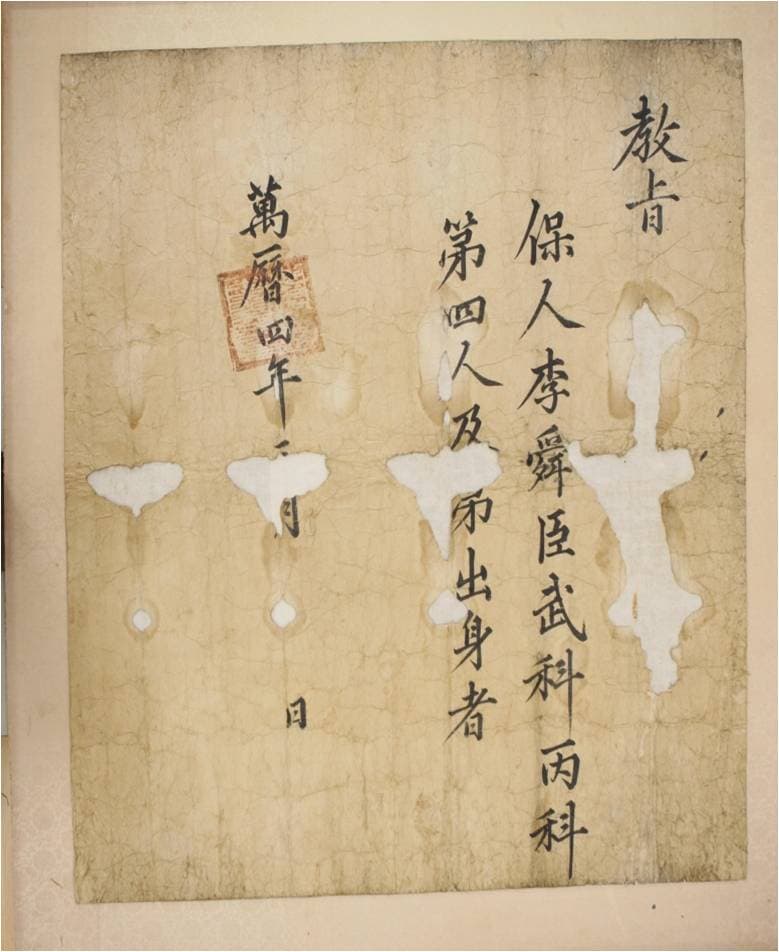 教旨
保人李舜臣武科丙科
第四人及第出身者
萬曆四年三月 日